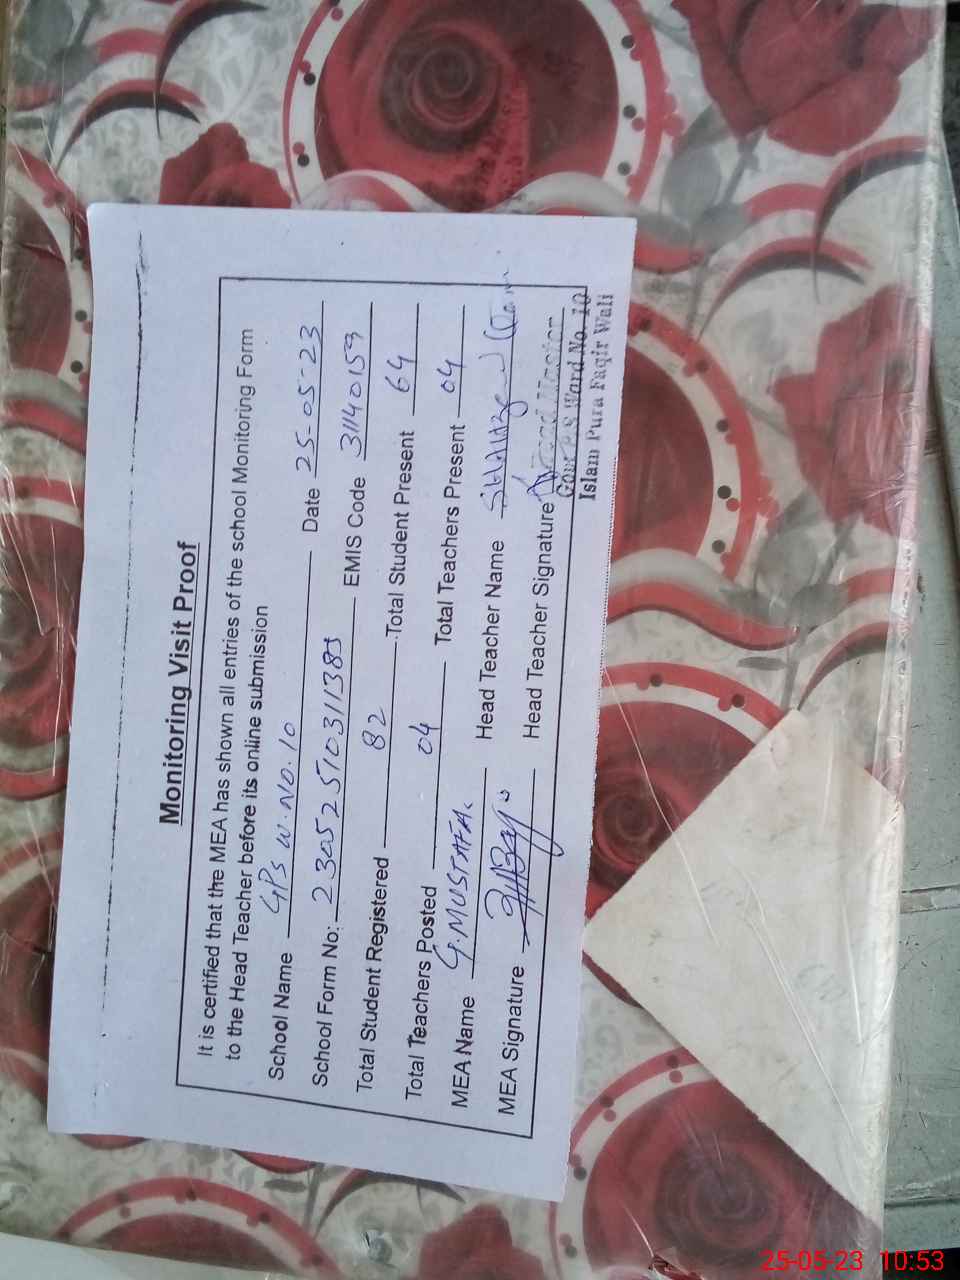 Monitoring Visit Proof
It is certified that the MEA has shown all entries of the school Monitoring Form
to the Head Teacher before its online submission
School Name GPS W.NO.10 Date 25-05-23
School Form No: 230525103111385 EMIS Code 31140159
Total Student Registered 82 Total Student Present 64
Total Teachers Posted 04 Total Teachers Present 04
MEA Name G.MUSTAFA Head Teacher Name
MEA Signature Head Teacher Signature
Head Master
Ward No. 10
Islam Pura Faqir Wali
25-05-23 10:53